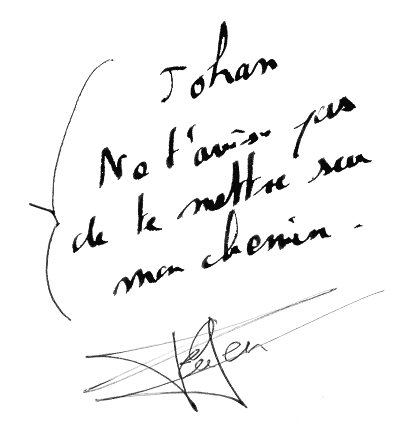 Johan
Ne t'avise pas
de te mettre sur
mon chemin.